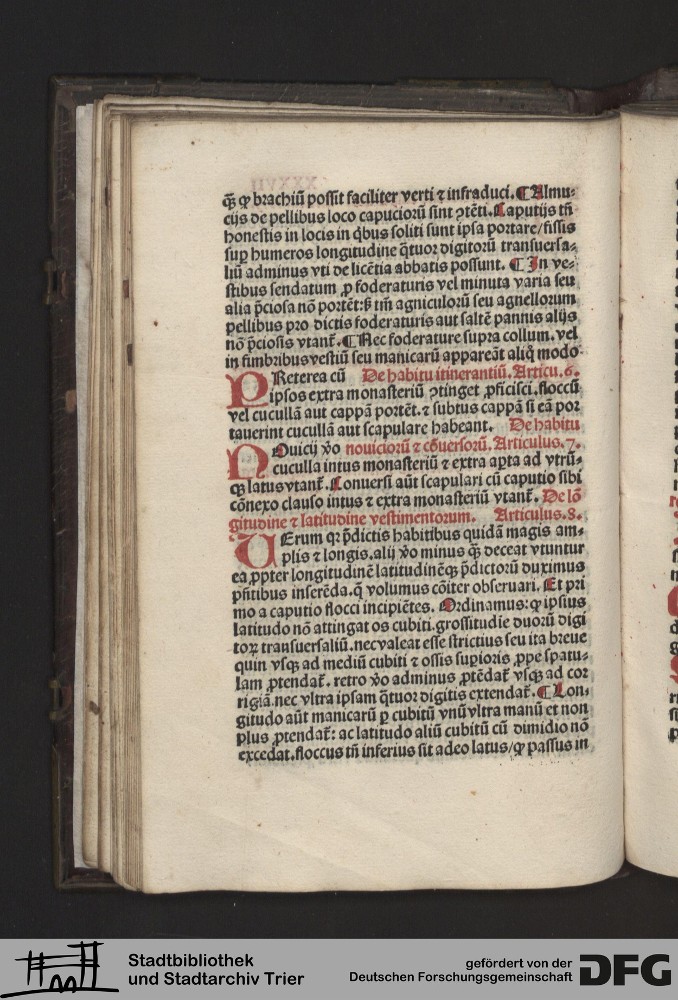 q̃ꝫ ꝙ brachiũ possit faciliter verti ⁊ infraduci. ¶ Almu⸗
cijs de pellibus loco capuciorũ sint ꝯtẽti. Caputijs tñ
honestis in locis in q̇bus soliti sunt ipsa portare/fissis
suꝑ humeros longitudine q̃tuor digitorũ transuersa⸗
liũ adminus vti de licẽtia abbatis possunt. ¶ In ve⸗
stibus sendatum ꝓ foderaturis vel minuta varia seu
alia p̃ciosa nõ portẽt: sꝫ tm̃ agniculorũ seu agnellorum
pellibus pro dictis foderaturis aut saltẽ pannis alijs
nõ p̃ciosis vtanť. ¶ Nec foderature supra collum. vel
in fimbribus vestiũ seu manicarũ appareãt aliq̃ modo
PReterea cũ De habitu itinerantiũ. Articu. 6.
ipsos extra monasteriũ ꝯtinget ꝓficisci. floccũ
vel cucullã aut cappã portẽt. ⁊ subtus cappã si eã por
tauerint cucullã aut scapulare habeant. De habitu
NOuicij ṽo nouiciorũ ⁊ cõuersorũ. Articulus. 7.
cuculla intus monasteriũ ⁊ extra aꝑta ad vtrũ⸗
qꝫ latus vtanť. Conuersi aũt scapulari cũ caputio sibi
cõnexo clauso intus ⁊ extra monasteriũ vtanť. De lõ
gitudine ⁊ latitudine vestimentorum. Articulus. 8.
VErum qꝛ p̃dictis habitibus quidã magis am⸗
plis ⁊ longis. alij ṽo minus q̃ꝫ deceat vtuntur
ea ꝓpter longitudinẽ latitudinẽqꝫ p̃dictorũ duximus
p̃ntibus inserẽda. q̃ volumus cõiter obseruari. Et pri
mo a caputio flocci incipiẽtes. Ordinamus: ꝙ ipsius
latitudo nõ attingat os cubiti. grossitudie duorũ digi
toꝝ transuersaliũ. nec valeat esse strictius seu ita breue
quin vsqꝫ ad mediũ cubiti ⁊ ossis suꝑioris ꝓpe spatu⸗
lam ꝓtendať. retro ṽo adminus ꝓtẽdať vsqꝫ ad cor
rigiã. nec vltra ipsam q̃tuor digitis extendať. ¶ Lon⸗
gitudo aũt manicarũ ꝑ cubitũ vnũ vltra manũ et non
plus ꝓtendať: ac latitudo aliũ cubitũ cũ dimidio nõ
excedat. floccus tñ inferius sit adeo latus/ꝙ passus in
Stadtbibliothek
und Stadtarchiv Trier
gefördert von der
Deutschen Forschungsgemeinschaft
DFG